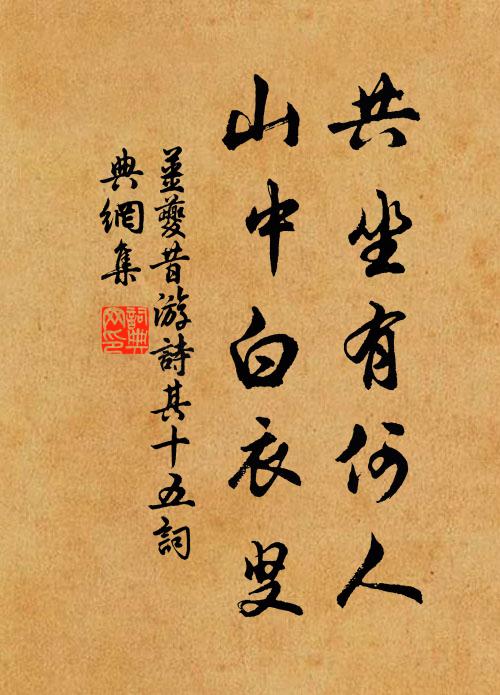 共坐有何人
山中白衣叟
姜夔昔游詩其十五詞
典網集
詞典
网印